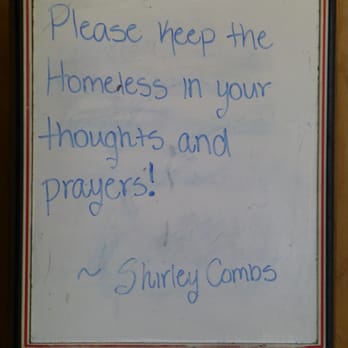 Please Keep the
Homeless in your
thoughts and
prayers!
~ Shirley Combs